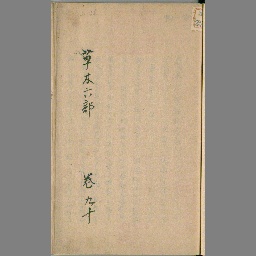 草木六部
卷九十